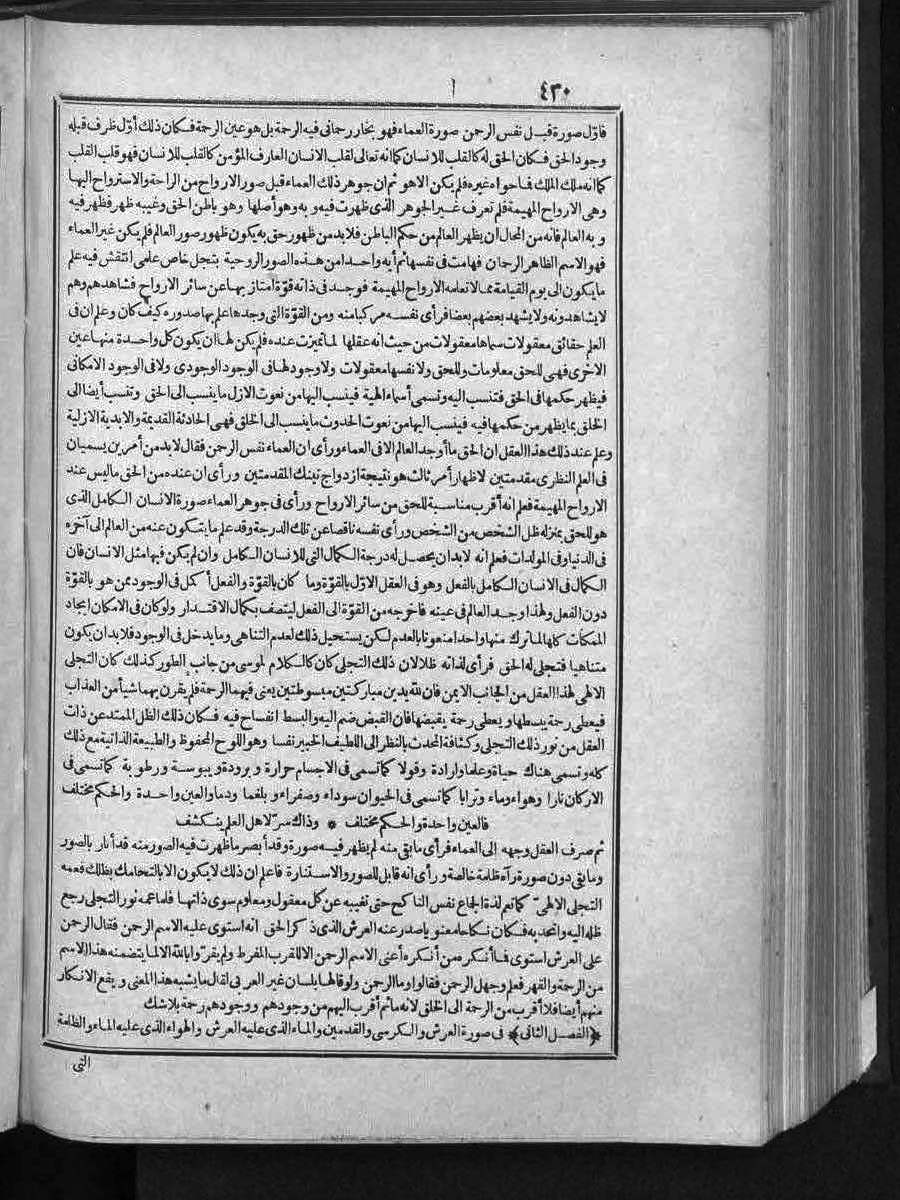 ٤٣٠
فاوّل صورة قبل نفس الرحمن صورة العماء فهو بخار رحمانى فيه الرحمة بل هو عين الرحمة فكان ذلك أوّل ظرف قبله
وجود الحق فكان الحق له كالقلب للانسان كما انه تعالى لقلب الانسان العارف المؤمن كالقلب للانسان فهو قلب القلب
كما انه ملك الملك فاحواه غيره فلم يكن الا هو ثم ان جوهر ذلك العماء قبل صور الارواح من الراحة والاسترواح اليها
وهى الارواح المهيمة فلم تعرف غير الجوهر الذى ظهرت فيه وبه وهو أصلها وهو باطن الحق وغيبه ظهر فظهر فيه
وبه العالم فانه من المحال أن يظهر العالم من حكم الباطن فلابد من ظهور حق به يكون ظهور صور العالم فلم يكن غير العماء
فهو الاسم الظاهر الرحمان فهامت فى نفسها ثم أيه واحدا من هذه الصور الروحية بتجل خاص علمى انتقش فيه علم
ما يكون الى يوم القيامة مما لا تعلمه الارواح المهيمة فوجد فى ذاته قوّة امتاز بها عن سائر الارواح فشاهدهم وهم
لا يشاهدونه ولا يشهد بعضهم بعضا فرأى نفسه مركبا منه ومن القوّة التى وجدها علم بها صدوره كيف كان وعلم ان فى
العلم حقائق معقولات سماها معقولات من حيث انه عقلها لما تميزت عنده فلم يكن لها ان يكون كل واحدة منها عين
الاخرى فهى للحق معلومات وللحق ولانفسها معقولات ولا وجود لها فى الوجود الوجودى ولا فى الوجود الامكانى
فيظهر حكمها فى الحق فتنسب اليه وتسمى أسماء الهية فينسب اليها من نعوت الازل ما ينسب الى الحق وتنسب أيضا الى
الخلق بما يظهر من حكمها فيه فينسب اليها من نعوت الحدوث ما ينسب الى الخلق فهى الحادثة القديمة والابدية الازلية
وعلم عند ذلك هذا العقل ان الحق ما أوجد العالم الا فى العماء ورأى ان العماء نفس الرحمن فقال لابد من أمرين يسميان
فى العلم النظرى مقدمتين لاظهار أمر ثالث هو نتيجة ازدواج تينك المقدمتين ورأى ان عنده من الحق ما ليس عند
الارواح المهيمة فعلم انه أقرب مناسبة للحق من سائر الارواح ورأى فى جوهر العماء صورة الانسان الكامل الذى
هو للحق بمنزلة ظل الشخص من الشخص ورأى نفسه ناقصا عن تلك الدرجة وقد علم ما يتكون عنه من العالم الى آخره
فى الدنيا وفى المولدات فعلم انه لابد ان يحصل له درجة الكمال التى للانسان الكامل وان لم يكن فيها مثل الانسان فان
الكمال فى الانسان الكامل بالفعل وهو فى العقل الاوّل بالقوّة وما كان بالقوّة والفعل أكمل فى الوجود ممن هو بالقوّة
دون الفعل ولهذا وجد العالم فى عينه فاخرجه من القوّة الى الفعل ليتصف بكمال الاقتدار ولو كان فى الامكان ايجاد
الممكنات كلها لما ترك منها واحدا منعوتا بالعدم لكن يستحيل ذلك لعدم التناهى وما يدخل فى الوجود فلابد ان يكون
متناهيا فتجلى له الحق فرأى لذاته ظلا لان ذلك التجلى كان كالكلام لموسى من جانب الطور كذلك كان التجلى
الالهى لهذا العقل من الجانب الايمن فان لله يدين مباركتين مبسوطتين يعنى فيهما الرحمة فلم يقرن بهما شيأ من العذاب
فيعطى رحمة ببسطها ويعطى رحمة بقبضها فان القبض ضم اليه والبسط انفساح فيه فكان ذلك الظل الممتد عن ذات
العقل من نور ذلك التجلى وكثافة المحدث بالنظر الى اللطيف الخبير نفسا وهو اللوح المحفوظ والطبيعة الذاتية مع ذلك
كله وتسمى هناك حياة وعلما وارادة وقولا كما تسمى فى الاجسام حرارة وبرودة ويبوسة ورطوبة كما تسمى فى
الاركان نارا وهواء وماء وترابا كما تسمى فى الحيوان سوداء وصفراء وبلغما ودما والعين واحدة والحكم مختلف
فالعين واحدة والحكم مختلف * وذاك سرّ لاهل العلم ينكشف
ثم صرف العقل وجهه إلى العماء فرأى ما بقى منه لم يظهر فيه صورة وقد أبصر ما ظهرت فيه الصور منه قد أنار بالصور
وما بقى دون صورة رآه ظلمة خالصة ورأى انه قابل للصور والاستنارة فاعلم ان ذلك لا يكون الا بالتحامك بظلك فعمه
التجلى الالهىّ كما تعم لذة الجماع نفس الناكح حتى تغيبه عن كل معقول ومعلوم سوى ذاتها فلما عمه نور التجلى رجع
ظله اليه واتحد به فكان نكاحا معنويا صدر عنه العرش الذى ذكر الحق انه استوى عليه الاسم الرحمن فقال الرحمن
على العرش استوى فما أنكره من أنكره أعنى الاسم الرحمن الا للقرب المفرط ولم يقرّوا بالله الا لما يتضمنه هذا الاسم
من الرحمة والقهر فعلم وجهل الرحمن فقالوا وما الرحمن ولو قالها بلسان غير العربى لقال ما يشبه هذا المعنى ويقع الانكار
منهم أيضا فلا أقرب من الرحمة الى الخلق لانه ما ثم أقرب اليهم من وجودهم ووجودهم رحمة بلا شك
﴿الفصل الثانى﴾ فى صورة العرش والكرسى والقدمين والماء الذى عليه العرش والهواء الذى عليه الماء والظلمة
التى